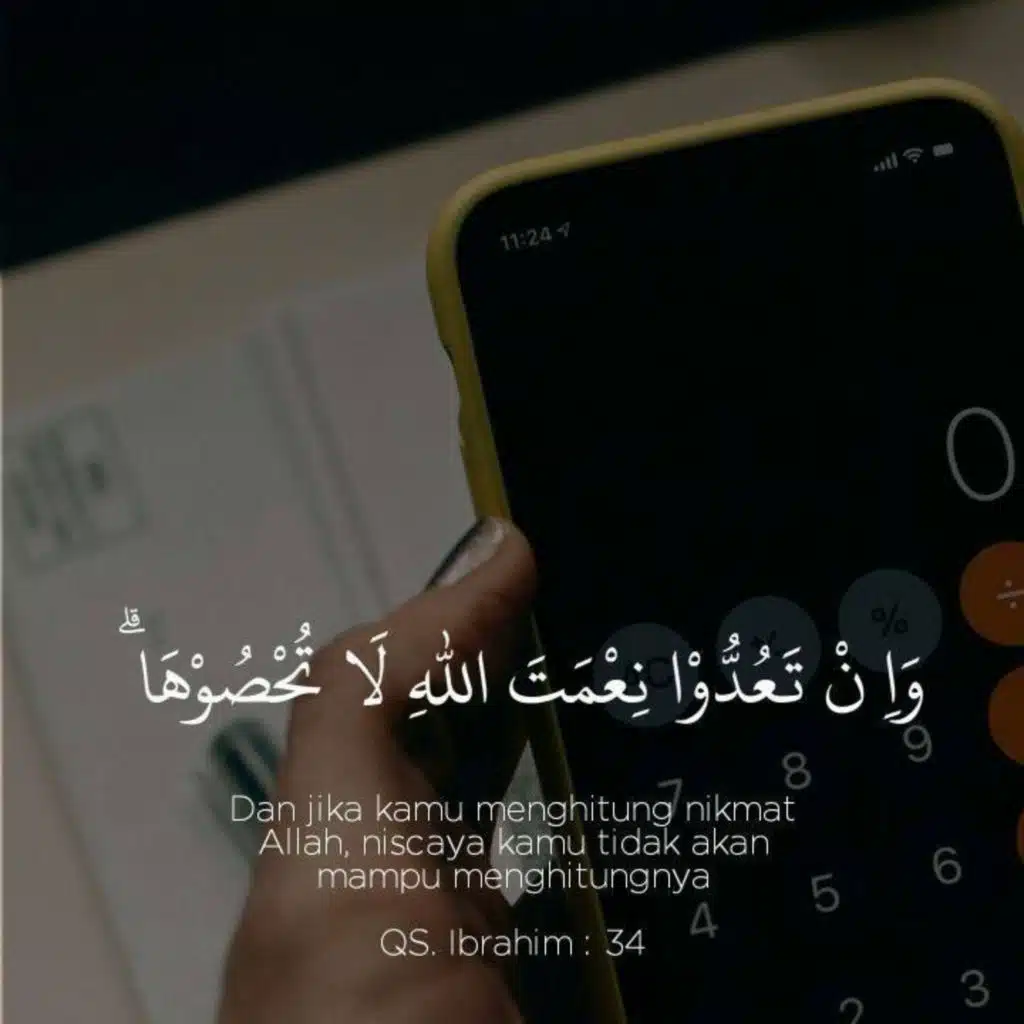 11:24
0
÷
%
وَاِنْ تَعُدُّوْا نِعْمَتَ اللّٰهِ لَا تُحْصُوْهَاۗ
7 8 9
Dan jika kamu menghitung nikmat
Allah, niscaya kamu tidak akan
mampu menghitungnya
4 5 6
QS. Ibrahim : 34
2 3